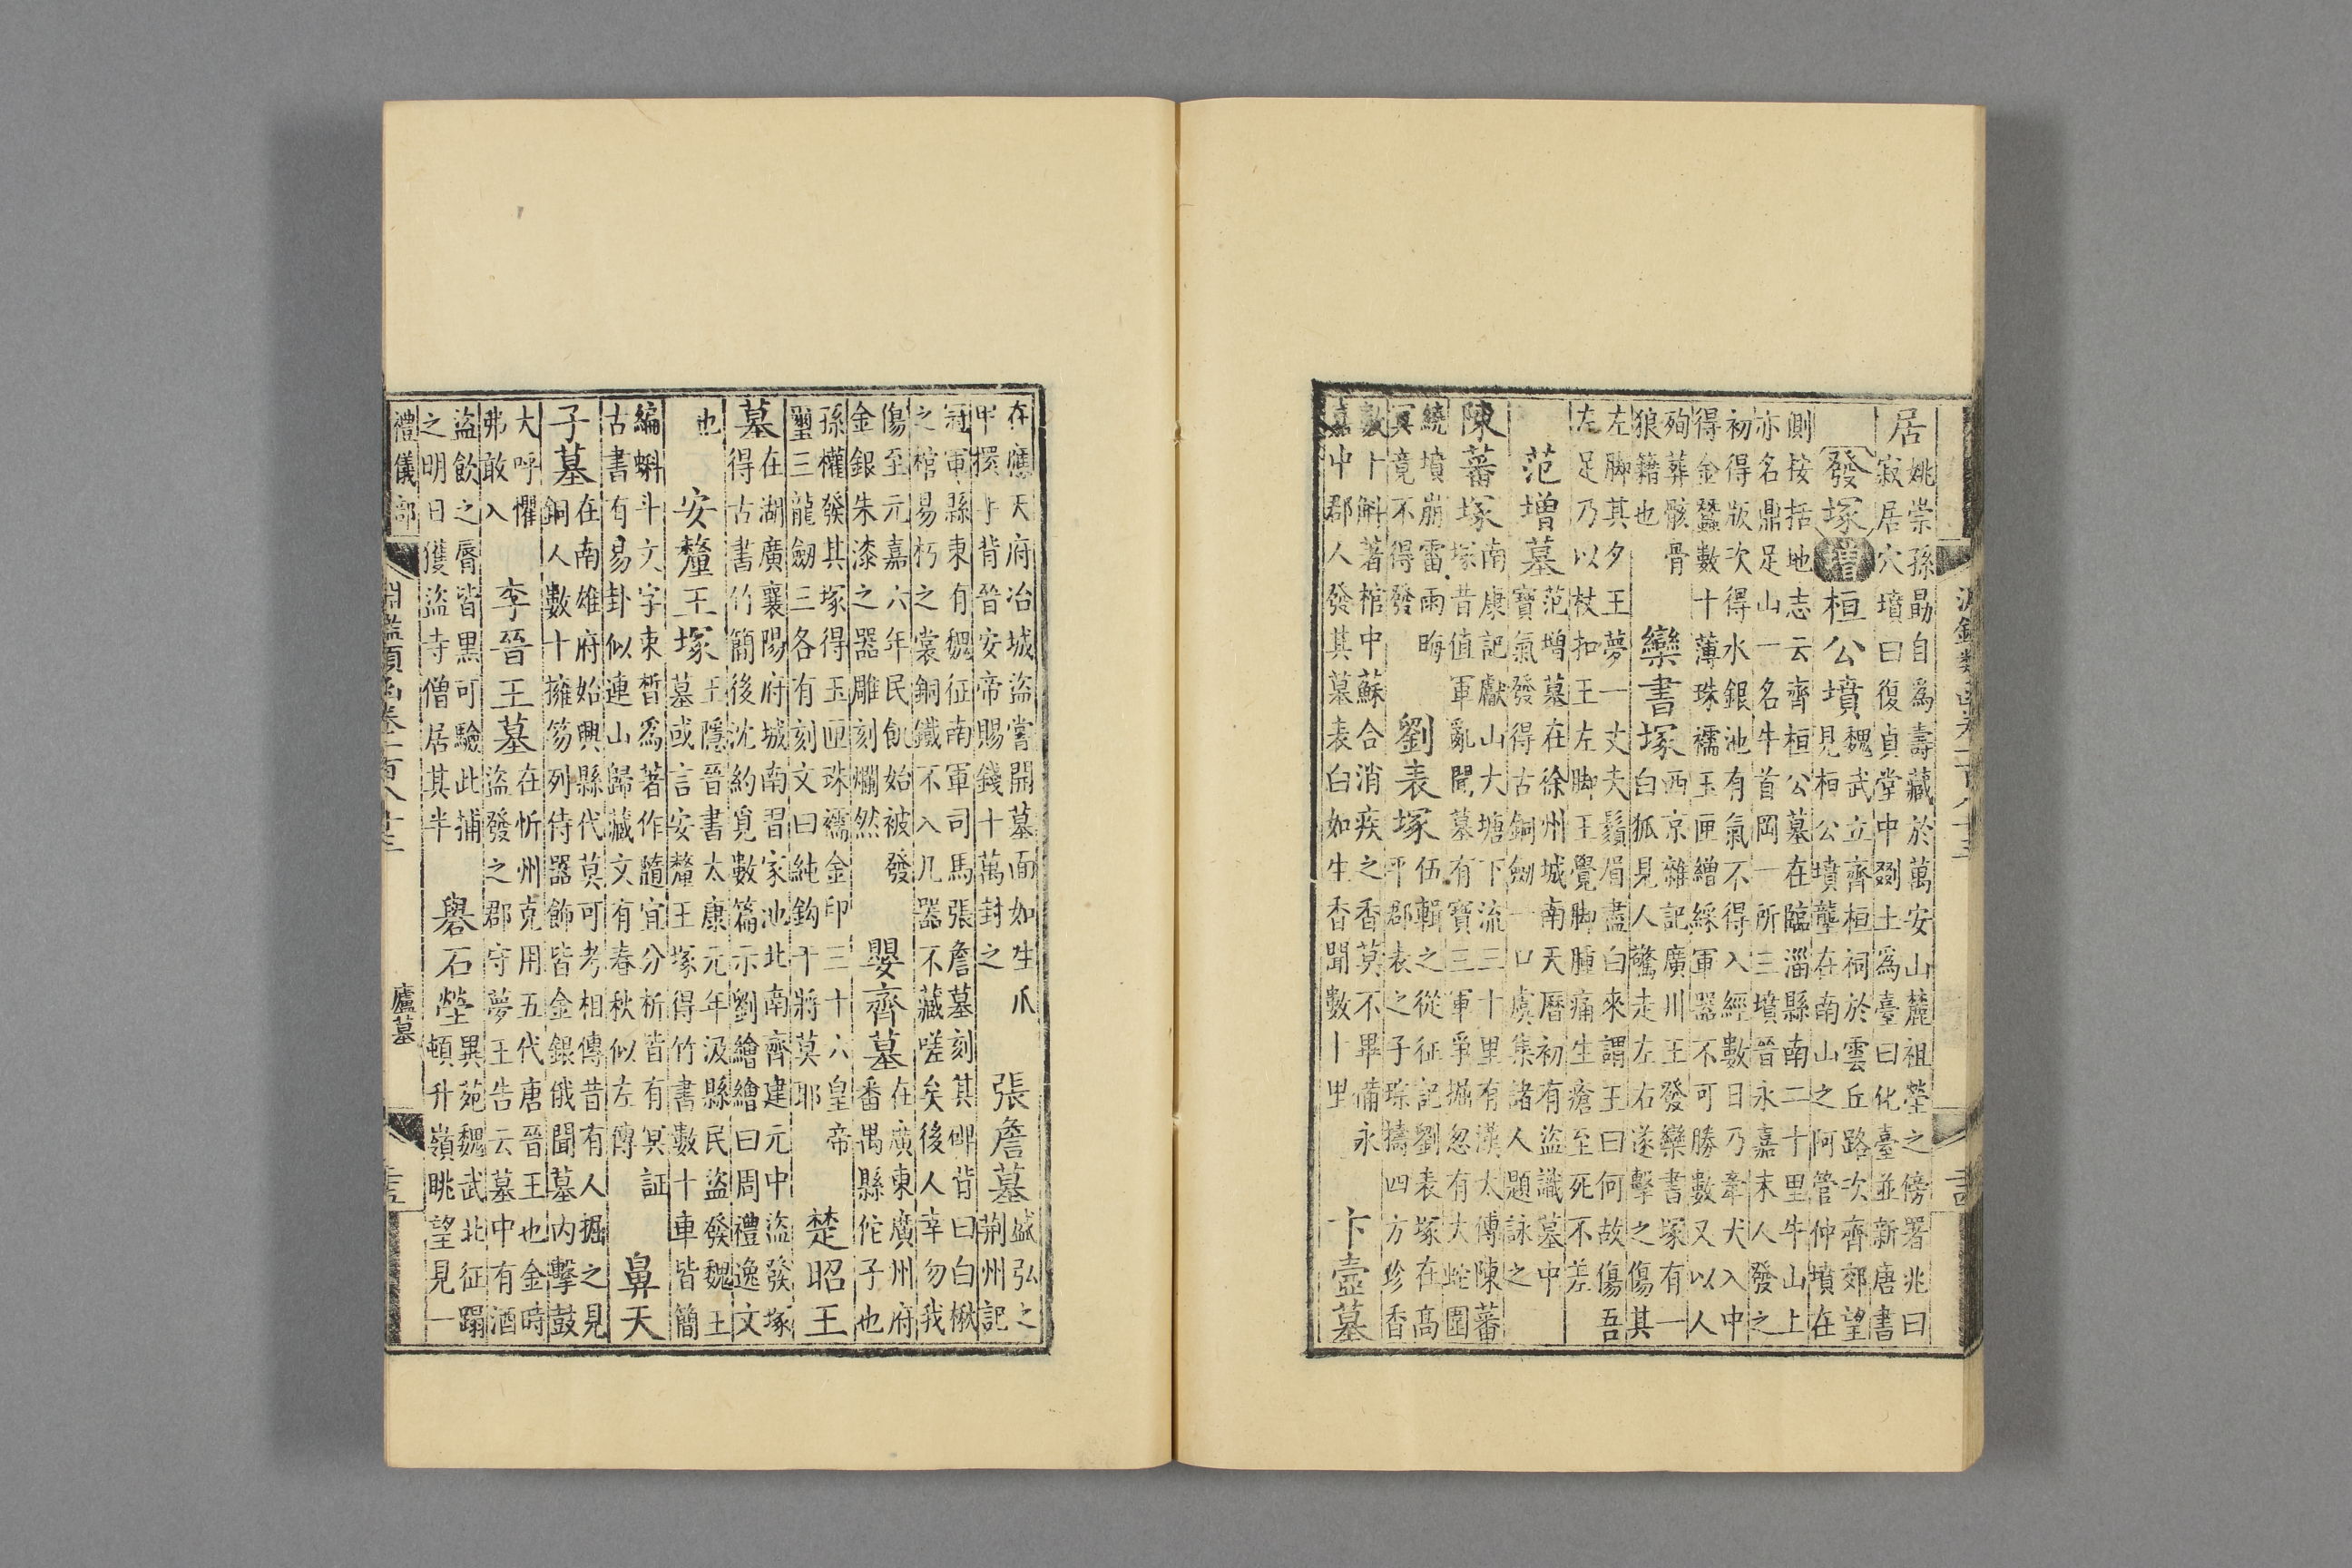 居
姚崇孫勗自為壽藏於萬安山麓祖塋之傍署兆曰
寂居穴墳曰復貞堂中剟土為臺曰化臺並新唐書
發塚 增 桓公墳
魏武立齊桓祠於雲丘路次齊郊望
見桓公墳壟在南山之阿管仲墳在
側按括地志云齊桓公墓在臨淄縣南二十里牛山上
亦名鼎足山一名牛首岡一所三墳晉永嘉末人發之
初得版次得水銀池有氣不得入經數日乃牽犬入中
得金蠶數十薄珠襦玉匣繒綵軍器不可勝數又以人
殉葬骸骨
狼籍也
欒書塚
西京雜記廣川王發欒書塚有一
白狐見人驚走左右遂擊之傷其
左脚其夕王夢一丈夫鬚眉盡白來謂王曰何故傷吾
左足乃以杖扣王左脚王覺脚腫痛生瘡至死不差
范增墓
范增墓在徐州城南天曆初有盜識墓中
寶氣發得古銅劒一口虞集諸人題詠之
陳蕃塚
南康記獻山大塘下流三十里有漢太傅陳蕃
塚昔值軍亂聞墓有寶三軍爭掘忽有大蛇圍
繞墳崩雷雨晦
冥竟不得發
劉表塚
伍輯之從征記劉表塚在高
平郡表之子琮擣四方珍香
數十斛著棺中蘇合消疾之香莫不畢備永
嘉中郡人發其墓表白如生香聞數十里
卞壼墓
在應天府冶城盜嘗開墓面如生爪
甲猨手背晉安帝賜錢十萬封之
張詹墓
盛弘之
荊州記
冠軍縣東有魏征南軍司馬張詹墓刻其碑背曰白楸
之棺易朽之裳銅鐵不入凡器不藏嗟矣後人幸勿我
傷至元嘉六年民飢始被發
金銀朱漆之器雕刻爛然
嬰齊墓
在廣東廣州府
番禺縣佗子也
孫權發其塚得玉匣珠襦金印三十六皇帝
璽三龍劒三各有刻文曰純鈎干將莫耶
楚昭王
墓
在湖廣襄陽府城南習家池北南齊建元中盜發塚
得古書竹簡後沈約覓數篇示劉繪繪曰周禮逸文
也
安釐王塚
王隱晉書太康元年汲縣民盜發魏王
墓或言安釐王塚得竹書數十車皆簡
編蝌斗文字束晳為著作隨宜分析皆有冥証
古書有易卦似連山歸藏文有春秋似左傳
鼻天
子墓
在南雄府始興縣代莫可考相傳昔有人掘之見
銅人數十擁笏列侍器飾皆金銀俄聞墓內擊鼓
大呼懼
弗敢入
李晉王墓
在忻州克用五代唐晉王也金時
盜發之郡守夢王告云墓中有酒
盜飲之脣皆黑可驗此捕
之明日獲盜寺僧居其半
礜石塋
異苑魏武北征蹋
頓升嶺眺望見一
禮儀部
淵鑑類函卷一百八十三
廬墓